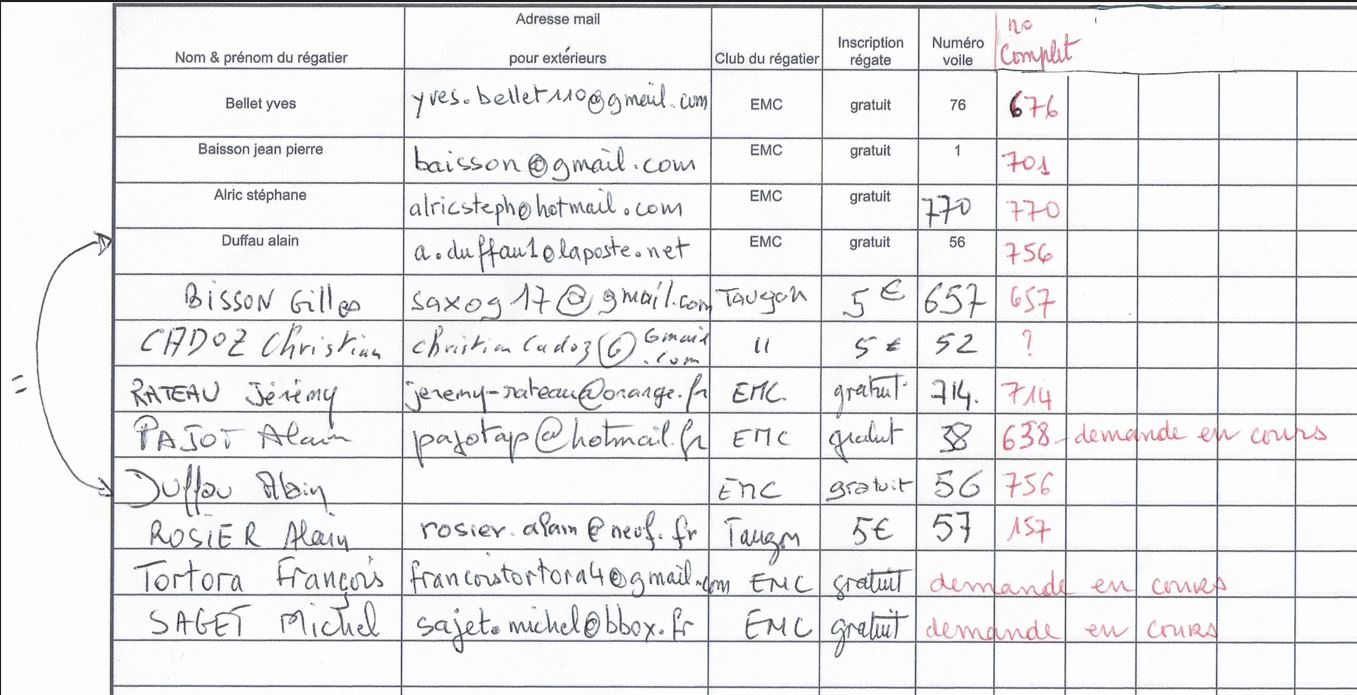 Nom & prénom du régatier Adresse mail pour extérieurs Club du régatier Inscription régate Numéro voile no Complet
Bellet yves yves.bellet110@gmail.com EMC gratuit 76 676
Baisson jean pierre baisson@gmail.com EMC gratuit 1 701
Alric stéphane alricsteph@hotmail.com EMC gratuit 770 770
Duffau alain a.duffau1@laposte.net EMC gratuit 56 756
BISSON Gilles saxog17@gmail.com Taugon 5 € 657 657
CADOZ Christian christian Cadoz@Gmail.com 11 5 € 52 ?
= RATEAU Jérémy jeremy-rateau@orange.fr EMC. gratuit 714. 714
PAJOT Alain pajotap@hotmail.fr EMC gratuit 38 638 - demande en cours
Duffau Alain EMC gratuit 56 756
ROSIER Alain rosier.alain@neuf.fr Taugon 5€ 57 157
Tortora François francoistortora4@gmail.com EMC gratuit demande en cours
SAGET Michel sajet.michel@bbox.fr EMC gratuit demande en cours